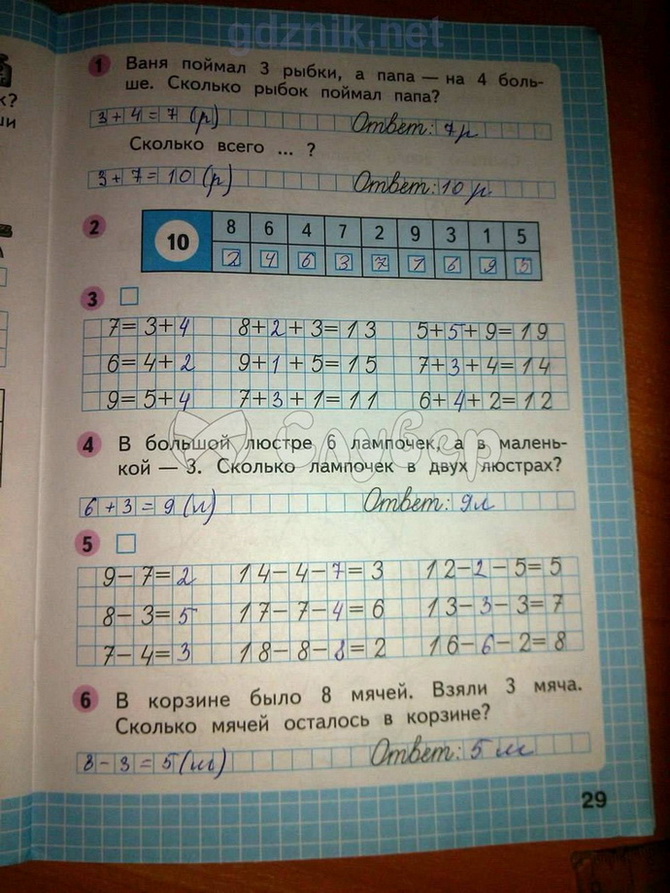 gdznik.net
1 Ваня поймал 3 рыбки, а папа — на 4 боль-
ше. Сколько рыбок поймал папа?
3+4=7 (р) Ответ: 7р
Сколько всего ... ?
3+7=10 (р) Ответ: 10 р.
2 10 8 6 4 7 2 9 3 1 5
2 4 6 3 7 1 6 9 5
3
7=3+4 8+2+3=13 5+5+9=19
6=4+2 9+1+5=15 7+3+4=14
9=5+4 7+3+1=11 6+4+2=12
Слувер
4 В большой люстре 6 лампочек, а в малень-
кой — 3. Сколько лампочек в двух люстрах?
6+3=9 (л) Ответ: 9л
5
9-7=2 14-4-7=3 12-2-5=5
8-3=5 17-7-4=6 13-3-3=7
7-4=3 18-8-8=2 16-6-2=8
6 В корзине было 8 мячей. Взяли 3 мяча.
Сколько мячей осталось в корзине?
8-3=5 (м) Ответ: 5 м
29